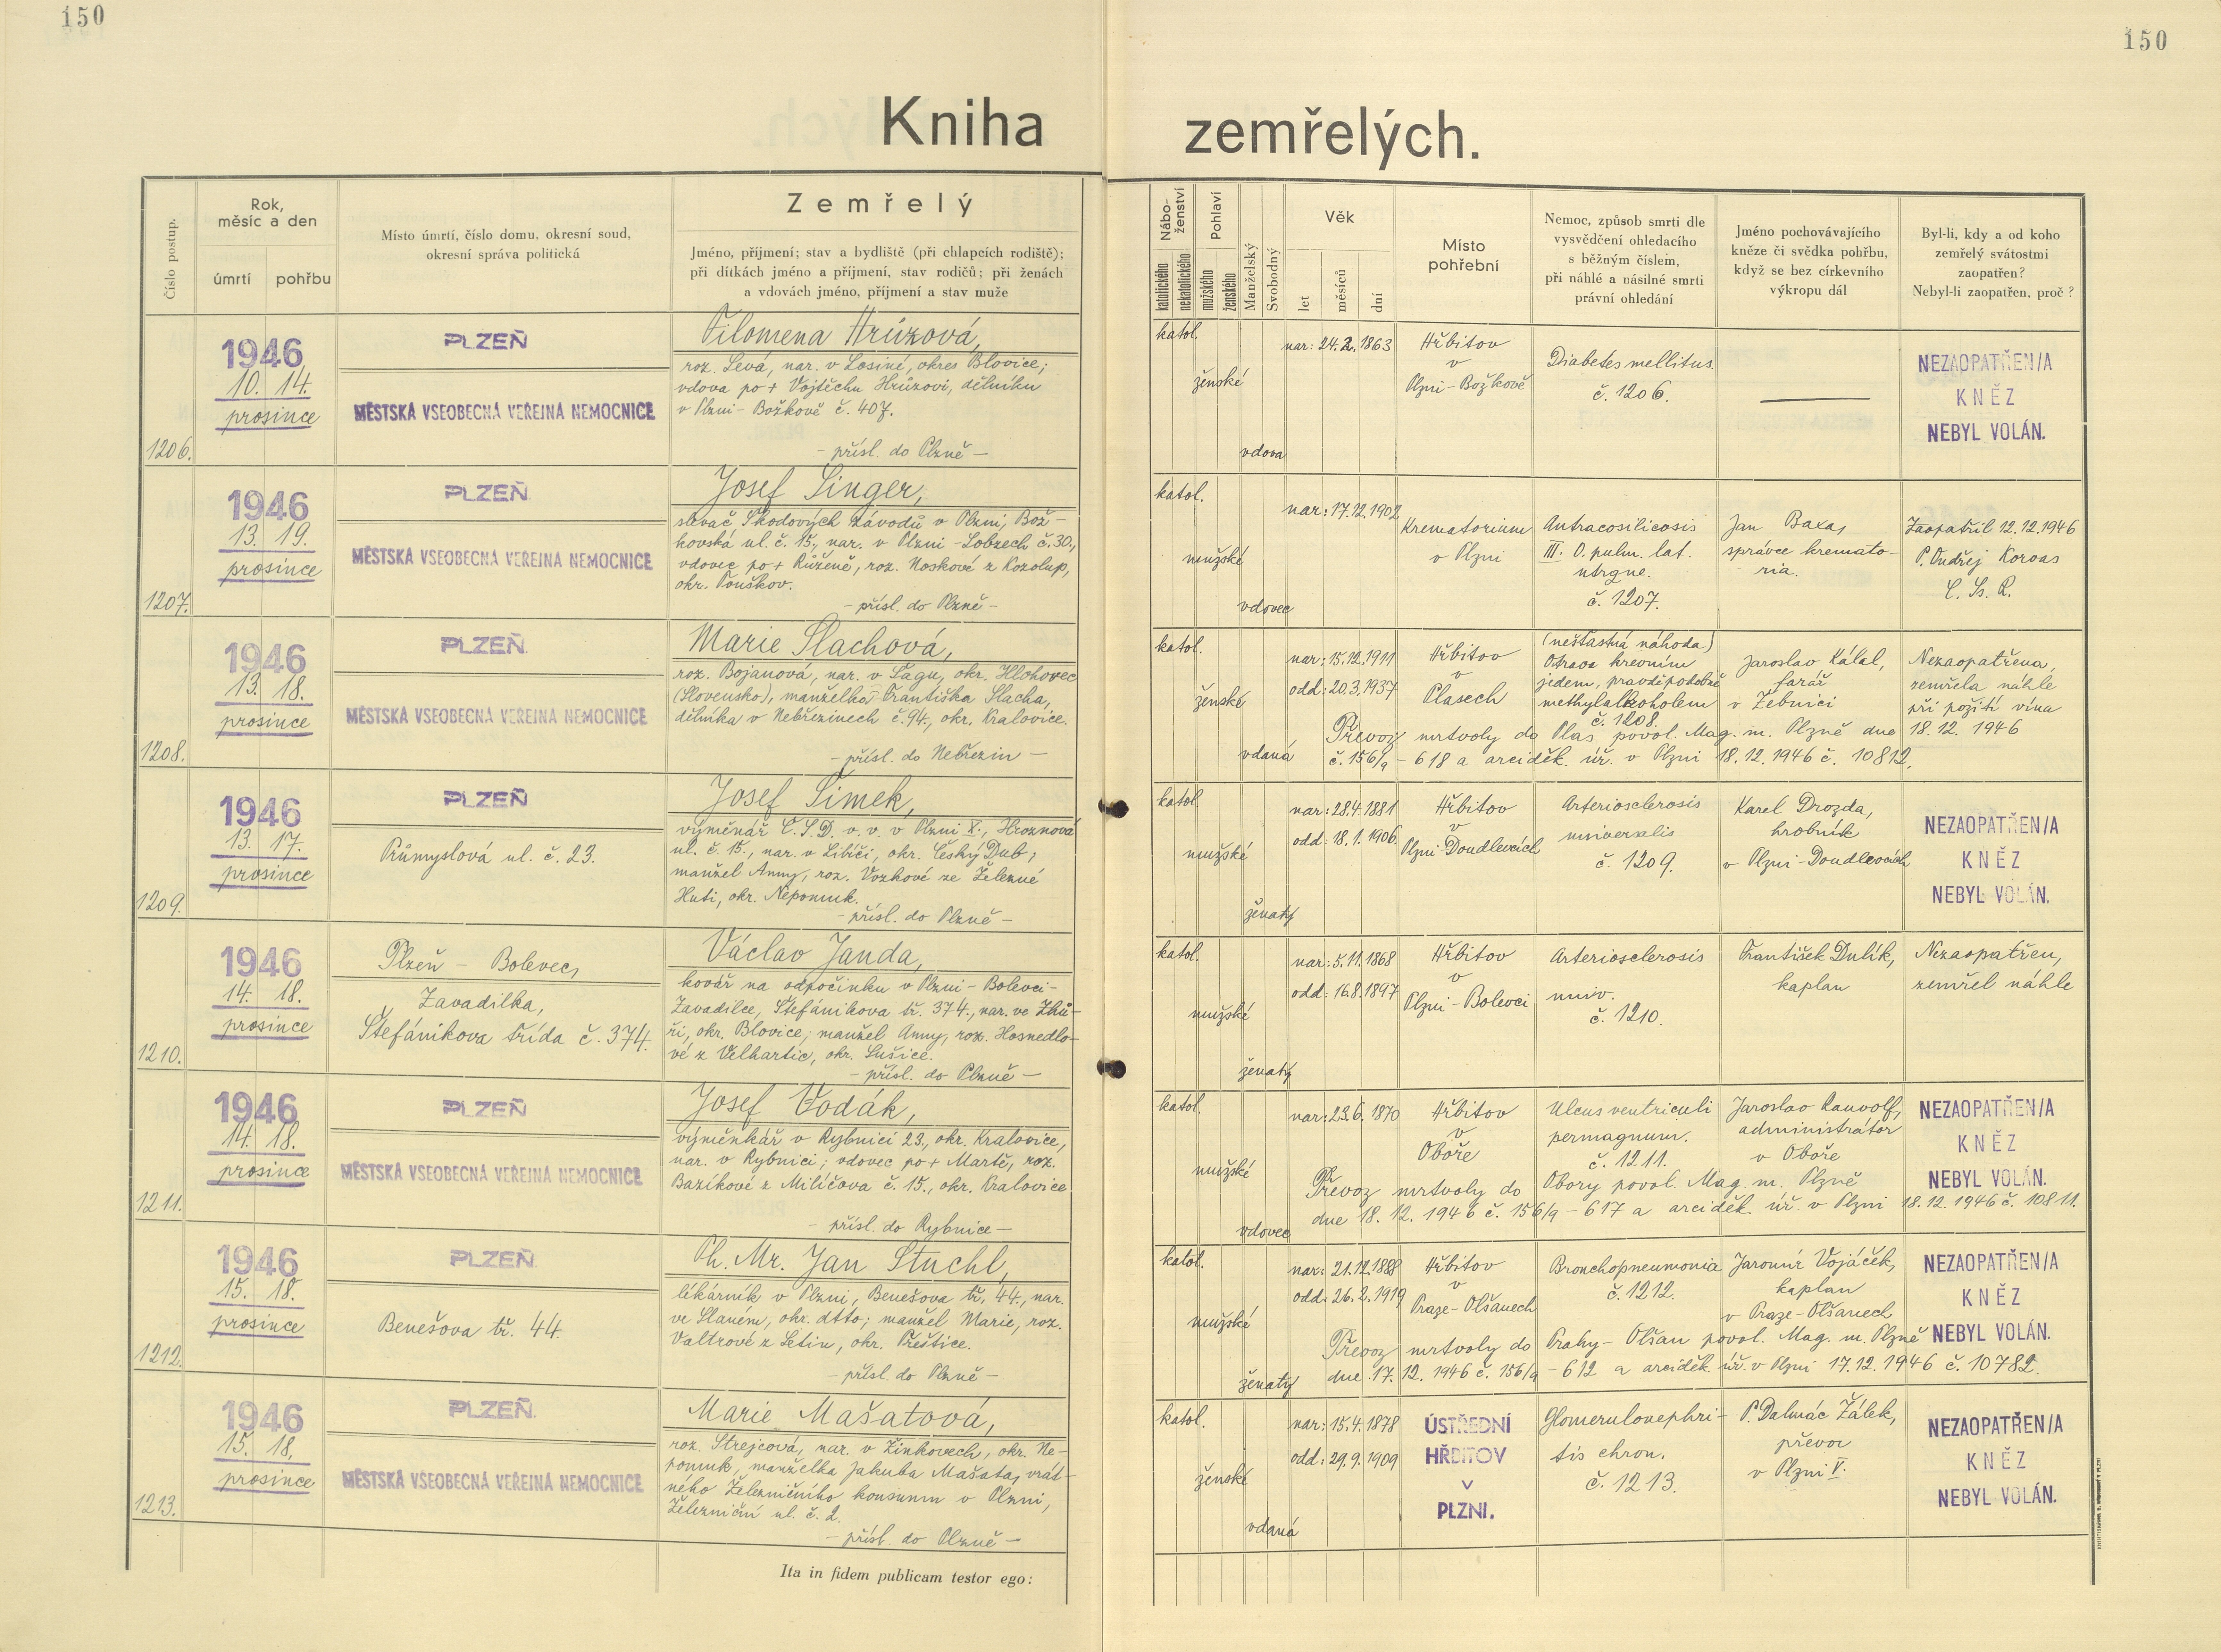 150
150
Kniha zemřelých.
Číslo postup.
Rok,
měsíc a den
úmrtí
pohřbu
Místo úmrtí, číslo domu, okresní soud,
okresní správa politická
Zemřelý
Jméno, příjmení; stav a bydliště (při chlapcích rodiště);
při dítkách jméno a příjmení, stav rodičů; při ženách
a vdovách jméno, příjmení a stav muže
Nábo-
ženství
katolického
nekatolického
Pohlaví
mužského
ženského
Manželský
Svobodný
Věk
let
měsíců
dní
Místo
pohřební
Nemoc, způsob smrti dle
vysvědčení ohledacího
s běžným číslem,
při náhlé a násilné smrti
právní ohledání
Jméno pochovávajícího
kněze či svědka pohřbu,
když se bez církevního
výkropu dál
Byl-li, kdy a od koho
zemřelý svátostmi
zaopatřen?
Nebyl-li zaopatřen, proč?
1206.
1946
10. 14.
prosince
PLZEŇ
MĚSTSKÁ VŠEOBECNÁ VEŘEJNÁ NEMOCNICE
Filomena Hrúzová,
roz. Levá, nar. v Losiné, okres Blovice;
vdova po + Vojtěchu Hrůzovi, dělníku
v Plzni - Božkově č. 407.
- přísl. do Plzně -
katol.
ženské
vdova
nar: 24.2.1863
Hřbitov
v
Plzni - Božkově
Diabetes mellitus.
č. 1206.
NEZAOPATŘEN/A
KNĚZ
NEBYL VOLÁN.
1207.
1946
13. 19.
prosince
PLZEŇ
MĚSTSKÁ VŠEOBECNÁ VEŘEJNÁ NEMOCNICE
Josef Singer,
slevač Škodových závodů v Plzni, Bož-
kovská ul. č. 15., nar. v Plzni - Lobzech č. 30.,
vdovec po + Růženě, roz. Noskové z Kozolup,
okr. Touškov.
- přísl. do Plzně -
katol.
mužské
vdovec
nar: 17.12.1902
Krematorium
v Plzni
Antracosilicosis
III. O. pulm. lat.
utrgue.
č. 1207.
Jan Baxa,
správce kremato-
ria.
Zaopatřil 12.12.1946
P. Ondřej Korvas
C. Ss. R.
1208.
1946
13. 18.
prosince
PLZEŇ
MĚSTSKÁ VŠEOBECNÁ VEŘEJNÁ NEMOCNICE
Marie Slachová,
roz. Bojanová, nar. v Šagu, okr. Hlohovec
(Slovensko), manželka Františka Slacha,
dělníka v Nebřezinech č. 94., okr. Kralovice.
- přísl. do Nebřezin -
katol.
ženské
vdaná
nar: 15.12.1911
odd: 20.3.1937
Hřbitov
v
Plasech
(nešťastná náhoda)
Otrava krevním
jedem, pravděpodobně
methylalkoholem
č. 1208.
Jaroslav Kálal,
farář
v Žebnici
Nezaopatřena,
zemřela náhle
při požití vína
Převoz mrtvoly do Plas povol. Mag. m. Plzně dne 18.12. 1946
č. 156/9 - 618 a arciděk. úř. v Plzni 18.12.1946 č. 10812.
1209.
1946
13. 17.
prosince
PLZEŇ
Průmyslová ul. č. 23.
Josef Šimek,
výměnář Č.S.D. v. v. v Plzni X., Hroznová
ul. č. 15., nar. v Libíči, okr. Český Dub;
manžel Anny, roz. Vozkové ze Železné
Huti, okr. Nepomuk.
- přísl. do Plzně -
katol.
mužské
ženatý
nar: 28.4.1881
odd: 18.1.1906.
Hřbitov
v
Plzni - Doudlevcích
Arteriosclerosis
universalis
č. 1209.
Karel Drozda,
hrobník
v Plzni - Doudlevcích
NEZAOPATŘEN/A
KNĚZ
NEBYL VOLÁN.
1210.
1946
14. 18.
prosince
Plzeň - Bolevec,
Zavadilka,
Štefánikova třída č. 374.
Václav Janda,
kovář na odpočinku v Plzni - Bolevci -
Zavadilce, Štefánikova tř. 374., nar. ve Zhů-
ři, okr. Blovice; manžel Anny, roz. Hosnedlo-
vé z Velhartic, okr. Sušice.
- přísl. do Plzně -
katol.
mužské
ženatý
nar: 5.11.1868
odd: 16.8.1897
Hřbitov
v
Plzni - Bolevci
Arteriosclerosis
univ.
č. 1210.
František Dulík,
kaplan
Nezaopatřen,
zemřel náhle
1211.
1946
14. 18.
prosince
PLZEŇ
MĚSTSKÁ VŠEOBECNÁ VEŘEJNÁ NEMOCNICE
Josef Vodák,
výměnkář v Rybnici 23., okr. Kralovice,
nar. v Rybnici; vdovec po + Martě, roz.
Bazíkové z Milíčova č. 15., okr. Kralovice
- přísl. do Rybnice -
katol.
mužské
vdovec
nar: 23.6.1870
Hřbitov
v
Oboře
Ulcus ventriculi
permagnum.
č. 1211.
Jaroslav Rauvolf,
administrátor
v Oboře
NEZAOPATŘEN/A
KNĚZ
NEBYL VOLÁN.
Převoz mrtvoly do Obory povol. Mag. m. Plzně
dne 18. 12. 1946 č. 156/9 - 617 a arciděk. úř. v Plzni 18.12. 1946 č. 10811.
1212.
1946
15. 18.
prosince
PLZEŇ
Benešova tř. 44.
Ph. Mr. Jan Stuchl,
lékárník v Plzni, Benešova tř. 44., nar.
ve Slaném, okr. dtto; manžel Marie, roz.
Valtrové z Letin, okr. Přeštice.
- přísl. do Plzně -
katol.
mužské
ženatý
nar: 21.12.1888
odd: 26.2.1919
Hřbitov
v
Praze - Olšanech
Bronchopneumonia
č. 1212.
Jaromír Vojáček,
kaplan
v Praze - Olšanech
NEZAOPATŘEN/A
KNĚZ
NEBYL VOLÁN.
Převoz mrtvoly do Prahy - Olšan povol. Mag. m. Plzně
dne 17. 12. 1946 č. 156/9 - 612 a arciděk. úř. v Plzni 17.12.1946 č. 10782.
1213.
1946
15. 18.
prosince
PLZEŇ
MĚSTSKÁ VŠEOBECNÁ VEŘEJNÁ NEMOCNICE
Marie Mašatová,
roz. Strejcová, nar. v Žinkovech, okr. Ne-
pomuk, manželka Jakuba Mašata, vrát-
ného Železničního konsumu v Plzni,
Železniční ul. č. 2.
- přísl. do Plzně -
katol.
ženské
vdaná
nar: 15.4.1878
odd: 29.9.1909
ÚSTŘEDNÍ
HŘBITOV
V
PLZNI.
Glomerulonephri-
tis chron.
č. 1213.
P. Dalmác Žálek,
převor
v Plzni V.
NEZAOPATŘEN/A
KNĚZ
NEBYL VOLÁN.
Ita in fidem publicam testor ego: